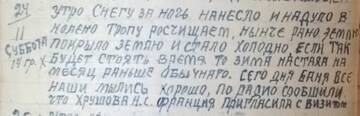 24
11
СУББОТА
14 гр. Х
УТРО СНЕГУ ЗА НОЧЬ НАНЕСЛО И НАДУЛО В
КОЛЕНО ТРОПУ РОСЧИЩАЕМ, НЫНЧЕ РАНО ЗЕМЛЮ
ПОКРЫЛО ЗЕМЛЮ И СТАЛО ХОЛОДНО, ЕСЛИ ТАК
БУДЕТ СТОЯТЬ ВРЕМЯ ТО ЗИМА НАСТАЛА НА
МЕСЯЦ РАНЬШЕ ОБЫЧНАГО. СЕГОДНЯ БАНЯ ВСЕ
НАШИ МЫЛИСЬ ХОРОШО, ПО РАДИО СООБШИЛИ
ЧТО ХРУШОВА Н.С. ФРАНЦИЯ ПРИГЛАСИЛА С ВИЗИТОМ